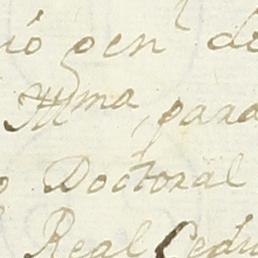 ió gen de
Illma, para
o Doctoral
Real Cedu